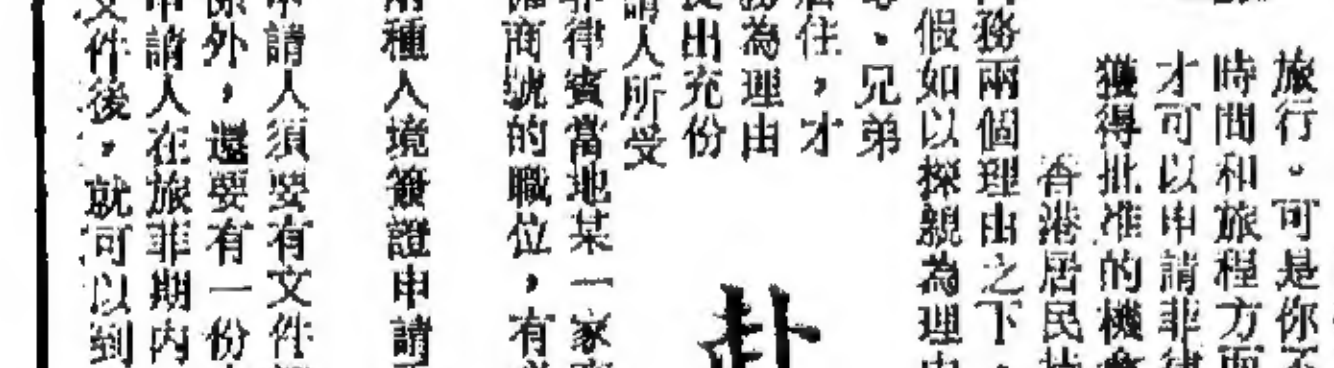 旅行。可是你不
時間和旅程方面
才可以申請菲律
獲得批准的機會
香港居民
務兩個理由之下,
假如以探親為理由
、兄弟
居住,才
務為理由
提出充份
請人所受
菲律賓當地某一家
商號的職位,有
種入境簽證申請
申請人須要有文件
除外,還要有一份
申請人在旅菲期內
文件後,就可以到
赴